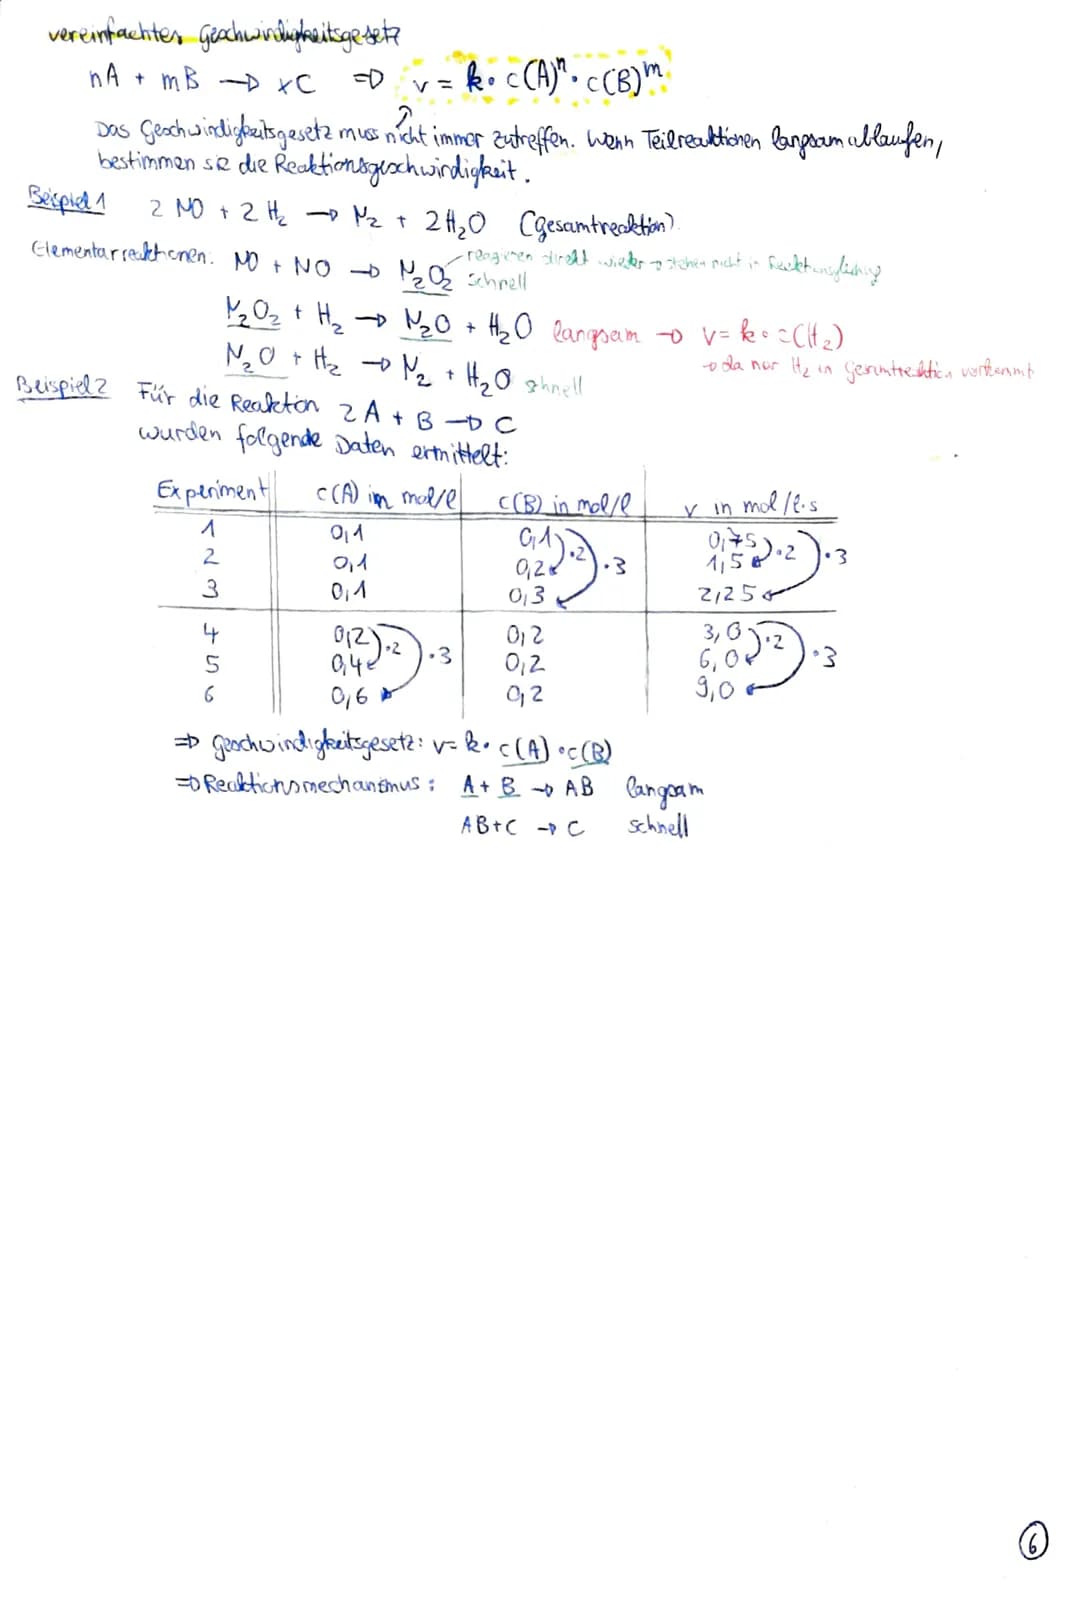 vereinfachtes Geschwindigkeitsgesetz
nA + mB → xC ⇒ v = k · c(A)ⁿ · c(B)ᵐ
Das Geschwindigkeitsgesetz muss nicht immer zutreffen. Wenn Teilreaktionen langsam ablaufen,
bestimmen sie die Reaktionsgeschwindigkeit.
Beispiel 1 2 NO + 2 H₂ → N₂ + 2 H₂O (Gesamtreaktion)
Elementarreaktionen: NO + NO → N₂O₂ schnell
reagieren direkt wieder → stehen nicht in Reaktionsgleichung
N₂O₂ + H₂ → N₂O + H₂O langsam → v = k · c(H₂)
→ da nur H₂ in Gesamtreaktion vorkommt
N₂O + H₂ → N₂ + H₂O schnell
Beispiel 2 Für die Reaktion 2 A + B → C
wurden folgende Daten ermittelt:
Experiment c(A) in mol/l c(B) in mol/l v in mol/l·s
1 0,1 0,1 0,75
2 0,1 0,2 ·2 ·3 1,5 ·2 ·3
3 0,1 0,3 2,25
4 0,2 0,2 3,0
5 0,4 ·2 ·3 0,2 6,0 ·2 ·3
6 0,6 0,2 9,0
⇒ Geschwindigkeitsgesetz: v = k · c(A) · c(B)
⇒ Reaktionsmechanismus: A + B → AB langsam
AB + C → C schnell
6